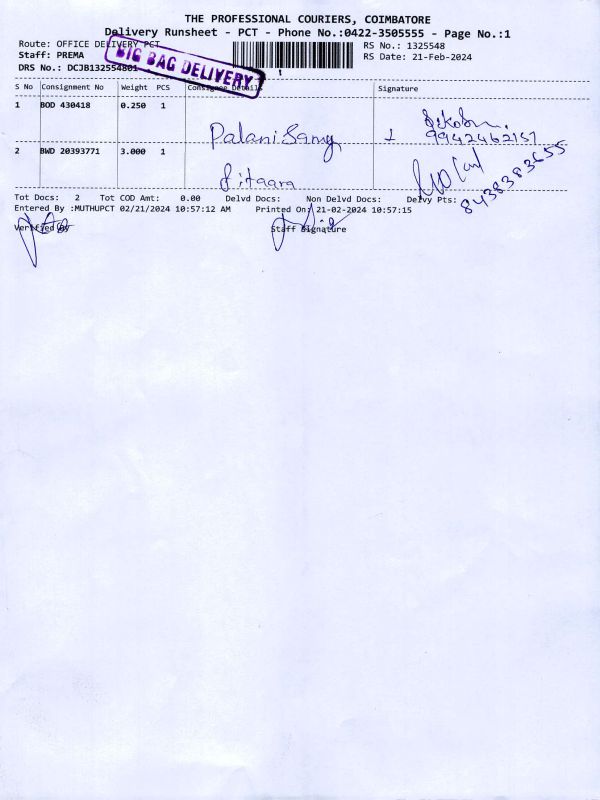 THE PROFESSIONAL COURIERS, COIMBATORE
Delivery Runsheet - PCT - Phone No.:0422-3505555 - Page No.:1
Route: OFFICE DELIVERY PCT
RS No.: 1325548
BIG BAG DELIVERY
Staff: PREMA
RS Date: 21-Feb-2024
DRS No.: DCJB132554801
S No Consignment No Weight PCS Consignee Details Signature
1 BOD 430418 0.250 1
PalaniSamy
9942462157
2 BWD 20393771 3.000 1
Sitaara
8438383655
Tot Docs: 2 Tot COD Amt: 0.00 Delvd Docs: Non Delvd Docs: Delvy Pts:
Entered By :MUTHUPCT 02/21/2024 10:57:12 AM Printed On: 21-02-2024 10:57:15
Verified By Staff Signature